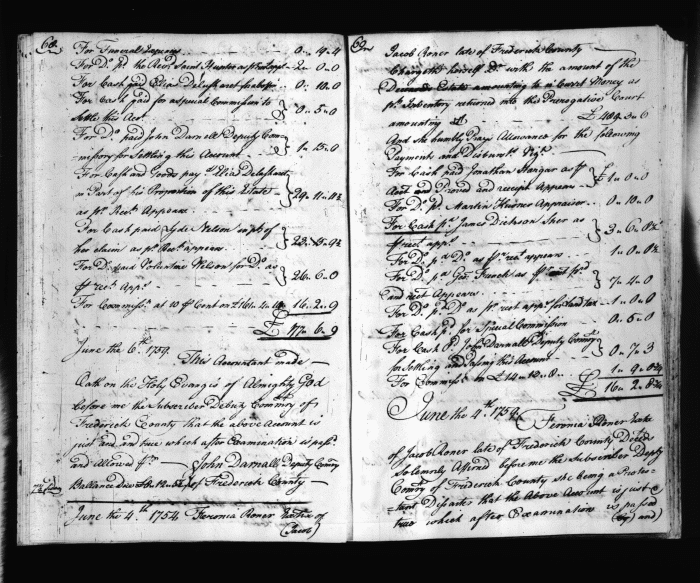 68
For Funeral Expences 0 „ 19 „ 4
For Do. pd. the Revd. Saml. Hunter as pr. rect. appr. 2 „ 0 „ 0
For Cash paid Elias Delashmet as above 0 „ 10 „ 0
For Cash paid for a special Commission to
Settle this Acct. 0 „ 5 „ 0
For Do. paid John Darnall Deputy Com=
missory for Settling this Account 1 „ 15 „ 0
For Cash and Goods pay'd Elias Delashmet
in Part of his Proportion of this Estate
as pr. Rect. Appears 29 „ 11 „ 11½
For Cash paid Lyde Nelson in pt. of
her claim as pr. Rect. appears 23 „ 15 „ 9½
For Do. paid Voluntine Nelson for Do. as
pr. rect. App. 26 „ 6 „ 0
For Commissn. at 10 pr. Cent on £161 „ 4 16 „ 2 „ 9
£ 177 „ 6 „ 9
June the 6th. 1754.
This Accountant made
Oath on the Holy Evangels of Almighty God
before me the Subscriber Deputy Commry of
Frederick County that the above Account is
just and true which after Examination is passd.
and allowed pr. John Darnall Deputy Commry
of Frederick County
Ballance Due
June the 4th. 1754 Feronia Roner Extrx of
(Jacob)
69
Jacob Roner late of Frederick County
Chargeth herself Dr. with the amount of the
Deceased Estate amounting to in Currt Money as
pr. Inventory returned into this Prerogative Court
amounting to £ 404 „ 3 „ 6
And she humbly Prays Allowance for the following
Payments and Disbursts. Vizt.
For Cash paid Jonathan Hangar as pr.
Acct and Proved and receipt Appears £ 1 „ 0 „ 0
For Do. pd. Martin Appraiser 0 „ 10 „ 0
For Cash pd. James Dickson Sher as
pr. rect appr. 3 „ 6 „ 0½
For Do. pd. Do. as pr. rect appears 1 „ 0 „ 0
For Do. pd. Geo. French as pr.
and rect Appears 7 „ 4 „ 0
For Do. pd. Do. as pr. rect appr. for Land tax 1 „ 0 „ 0
For Cash pd. for Special Commission 0 „ 5 „ 0
For Cash pd. John Darnall Deputy Commry
for Settling and Passing this Account 0 „ 7 „ 3
For Commissn. on £14 „ 12 „ 8 1 „ 9 „ 0¾
£ 16 „ 2 „ 8¾
June the 4th. 1754
Feronia Roner Extrx
of Jacob Roner late of Frederick County Deced
Solemnly Affirmd before me the Subscriber Deputy
Commry of Frederick County she being a Protes=
tant Dissenter that the Above Account is just &
true which after Examination is passed
(and)